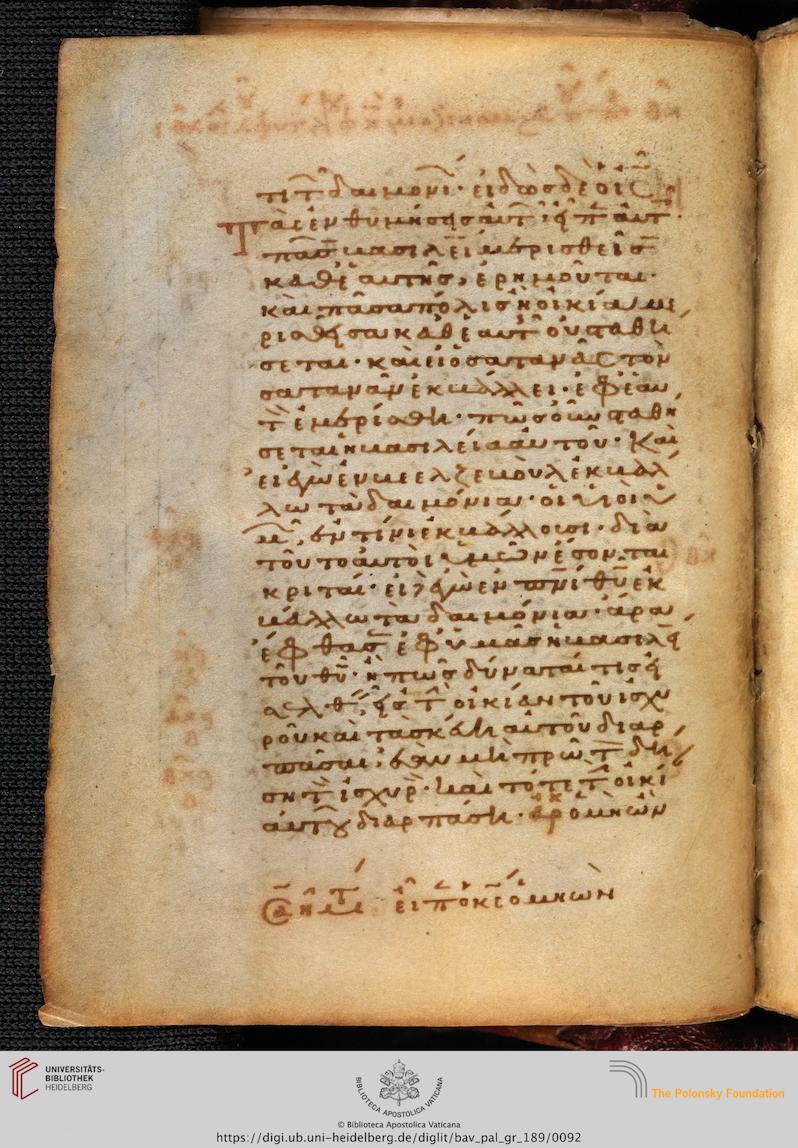 τι τ̅ δαιμονί· εἰδὼς δὲ ὁ ι̅ς̅
τὰς ἐνθυμήσης αὐτ· εἶπ αὐτ·
πᾶσ βασιλεί μερισθεῖσ
καθ' ἑαυτῆς, ἐρημοῦται·
καὶ πᾶσα πόλις ἢ οἰκία με
ρισθῆσα καθ' ἑαυτ οὐ σταθή
σεται· καὶ εἰ ὁ σατανᾶς τὸν
σατανᾶν ἐκβάλλει· ἐφ' ἑαυ
τ̀ ἐμερίσθη· πῶς οὖν σταθή
σεται ἡ βασιλεία αὐτοῦ· Καὶ
εἰ ἐγὼ ἐν βεελζεβοὺλ ἐκβάλ
λω τὰ δαιμόνια· οἱ υἱοὶ ὑ
μ, ἐν τίνι ἐκβάλλουσι· διὰ
τοῦτο αὐτοὶ ὑμῶν ἔσονται
κριταί· εἰ δὲ ἐγὼ ἐν π̅ν̅ι̅ θ̅υ̅ ἐκ
βάλλω τὰ δαιμόνια· ἄρα
ἔφθασ ἐφ' ὑμᾶς ἡ βασιλεί
τοῦ θ̅υ̅· ἢ πῶς δύναταί τις εἰ
σελθεῖν εἰς τ̅ οἰκίαν τοῦ ἰσχυ
ροῦ καὶ τὰ σκεύη αὐτοῦ διαρ
πᾶσαι, ἐὰν μὴ πρῶτ δή
ση τ̀ ἰσχυρ· καὶ τότε τ̅ οἰκί
αὐτοῦ διαρπάση· ὁ μὴ ὢν
εἶπ ὁ κ̅ς̅ ὁ μὴ ὢν
UNIVERSITÄTS-
BIBLIOTHEK
HEIDELBERG
BIBLIOTECA APOSTOLICA VATICANA
The Polonsky Foundation
© Biblioteca Apostolica Vaticana
https://digi.ub.uni-heidelberg.de/diglit/bav_pal_gr_189/0092